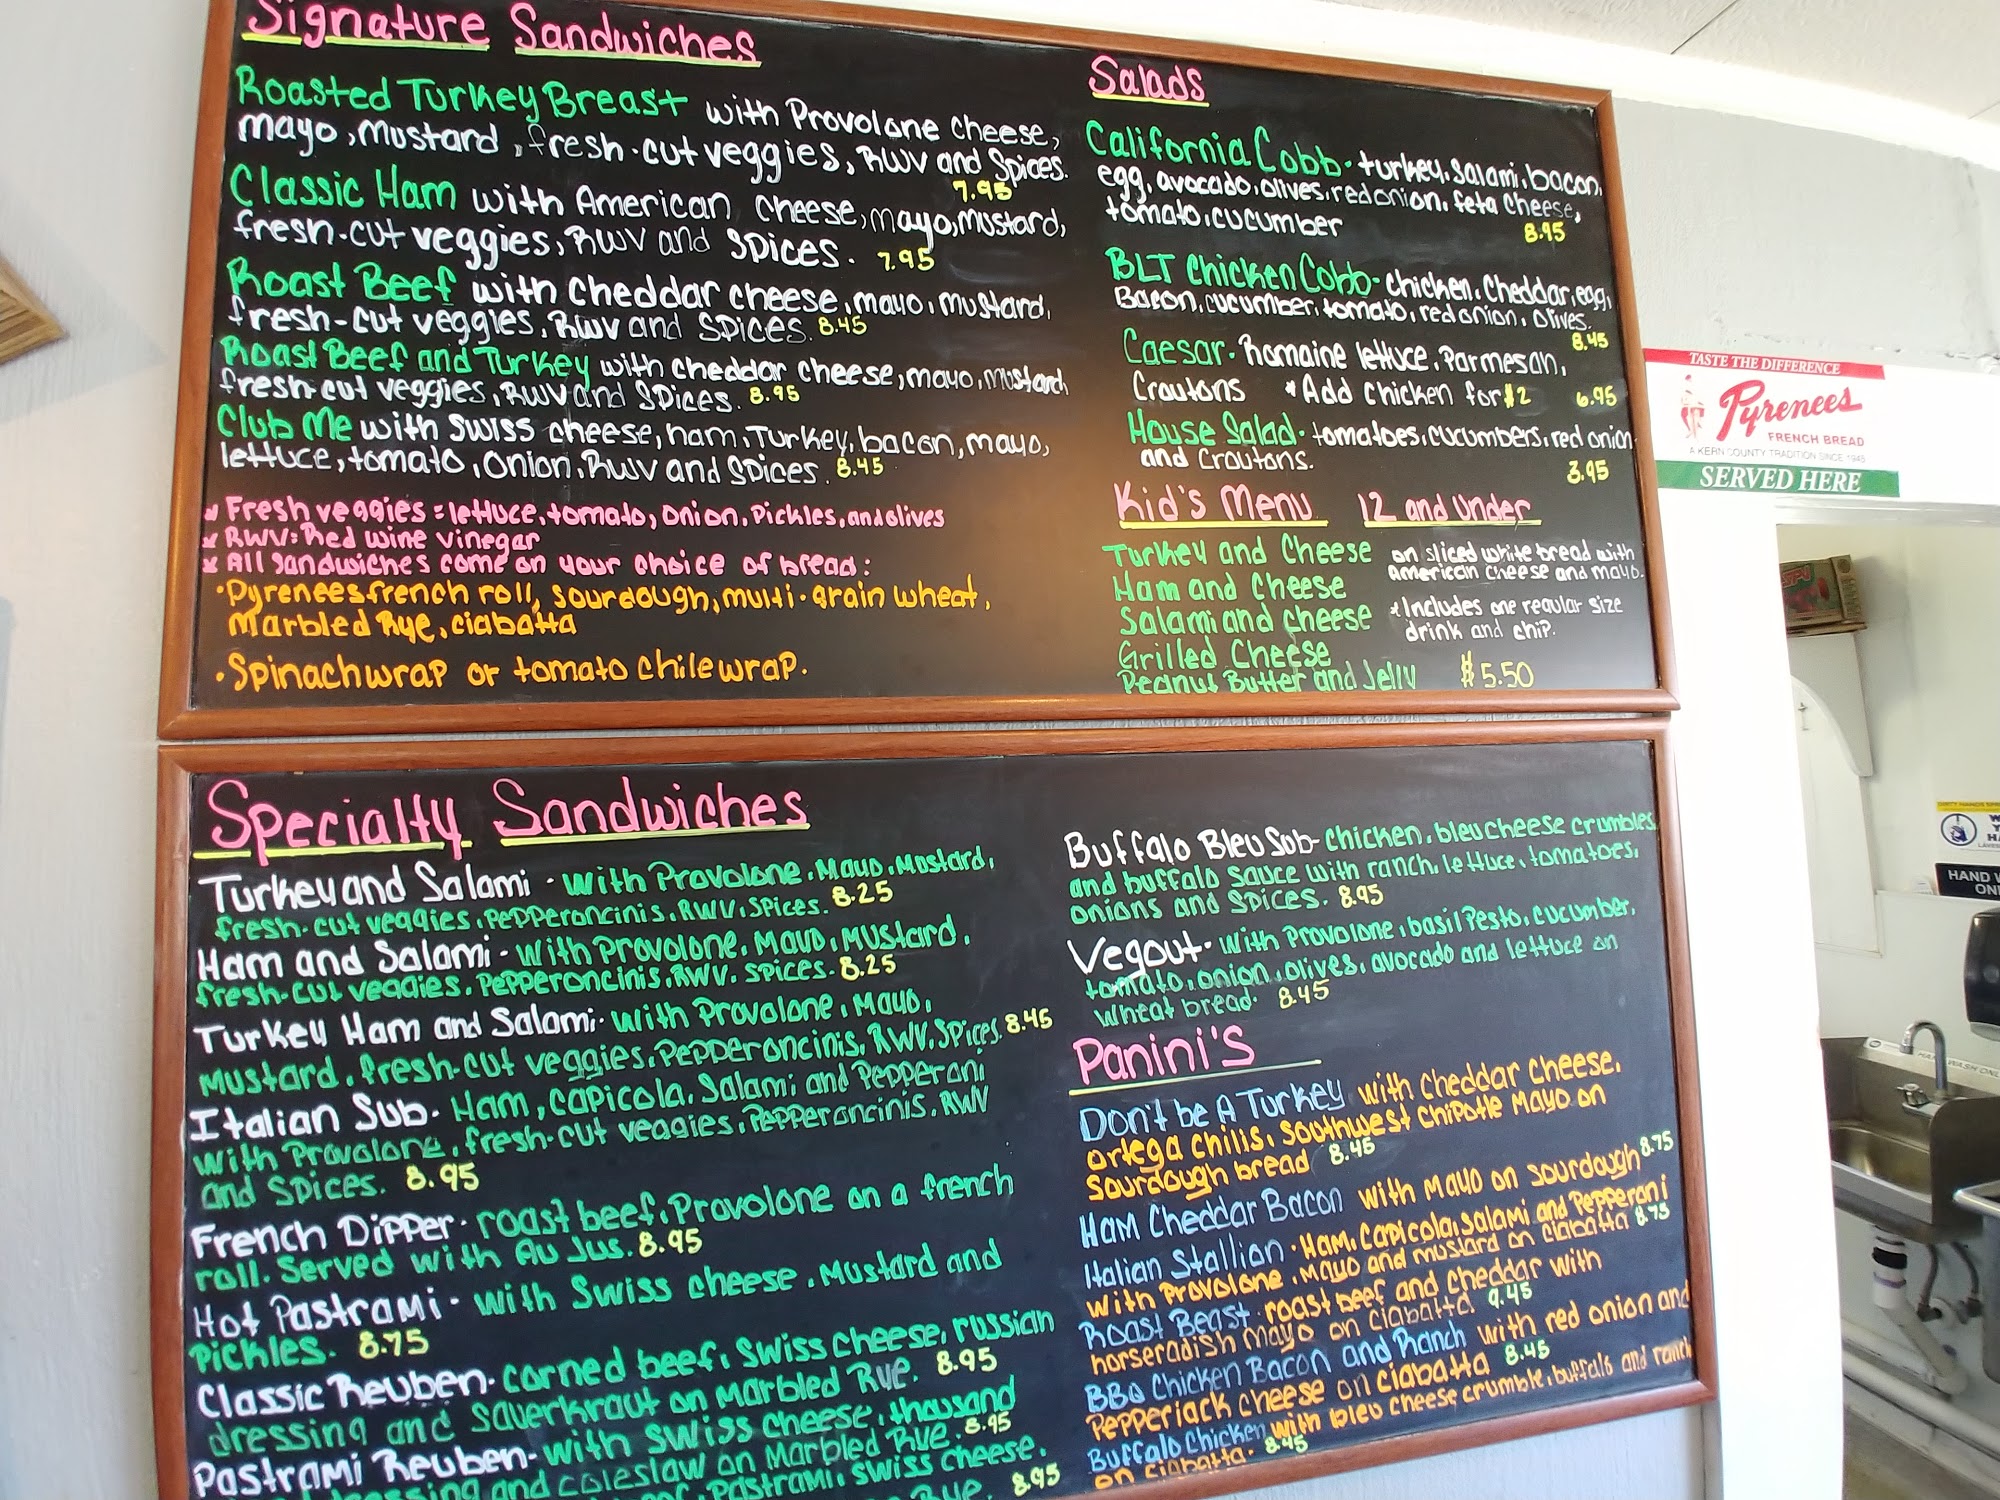 Signature Sandwiches
Roasted Turkey Breast with Provolone cheese,
mayo, mustard, fresh-cut veggies, RWV and Spices.
7.95
Classic Ham with American cheese, mayo, mustard,
fresh-cut veggies, RWV and Spices. 7.95
Roast Beef with cheddar cheese, mayo, mustard,
fresh-cut veggies, RWV and Spices. 8.45
Roast Beef and Turkey with cheddar cheese, mayo, mustard
fresh-cut veggies, RWV and Spices. 8.95
Club Me with swiss cheese, ham, Turkey, bacon, mayo,
lettuce, tomato, onion, RWV and Spices. 8.45
* Fresh veggies = lettuce, tomato, onion, pickles, and olives
* RWV: Red wine vinegar
* All sandwiches come on your choice of bread:
• Pyrenees french roll, sourdough, multi-grain wheat,
Marbled Rye, ciabatta
• Spinach wrap or tomato chile wrap.
Salads
California Cobb - turkey, salami, bacon,
egg, avocado, olives, red onion, feta cheese,
tomato, cucumber
8.95
BLT Chicken Cobb - chicken, cheddar, egg,
Bacon, cucumber, tomato, red onion, olives.
8.45
Caesar - Romaine lettuce, Parmesan,
Croutons * Add chicken for $2 6.95
House Salad - tomatoes, cucumbers, red onion
and Croutons.
3.95
Kid's Menu 12 and Under
Turkey and Cheese
Ham and Cheese
Salami and cheese
Grilled Cheese
Peanut Butter and Jelly
on sliced white bread with
American cheese and mayo.
* Includes one regular size
drink and chip.
$5.50
Specialty Sandwiches
Turkey and Salami - with Provolone, Mayo, Mustard,
fresh-cut veggies, pepperoncinis, RWV, spices. 8.25
Ham and Salami - with provolone, Mayo, Mustard,
fresh-cut veggies, pepperoncinis, RWV, spices. 8.25
Turkey Ham and Salami - with Provolone, Mayo,
Mustard, fresh-cut veggies, pepperoncinis, RWV, spices. 8.45
Italian Sub - Ham, capicola, Salami and pepperoni
with Provolone, fresh-cut veggies, pepperoncinis, RWV
and spices. 8.95
French Dipper - roast beef, Provolone on a french
roll. Served with Au Jus. 8.95
Hot Pastrami - with Swiss cheese, mustard and
pickles. 8.75
Classic Reuben - corned beef, swiss cheese, russian
dressing and sauerkraut on marbled Rye. 8.95
Pastrami Reuben - with swiss cheese, thousand
dressing and coleslaw on Marbled Rye. 8.95
pastrami, swiss cheese,
Rye. 8.95
Buffalo Bleu Sub - chicken, bleu cheese crumbles
and buffalo sauce with ranch, lettuce, tomatoes,
onions and spices. 8.95
Vegout - with Provolone, basil pesto, cucumber,
tomato, onion, olives, avocado and lettuce on
wheat bread. 8.45
Panini's
Don't be A Turkey with cheddar cheese,
ortega chilis, Southwest chipotle Mayo on
sourdough bread 8.45
Ham Cheddar Bacon with Mayo on sourdough 8.75
Italian Stallion - Ham, capicola, salami and pepperoni
with provolone, Mayo and mustard on ciabatta 8.75
Roast Beast - roast beef and cheddar with
horseradish mayo on ciabatta 9.45
BBQ Chicken Bacon and Ranch with red onion and
Pepperjack cheese on ciabatta 8.45
Buffalo Chicken with bleu cheese crumble, buffalo and ranch
on ciabatta. 8.45
TASTE THE DIFFERENCE
Pyrenees
FRENCH BREAD
A KERN COUNTY TRADITION SINCE 1945
SERVED HERE
HAND W
ONL